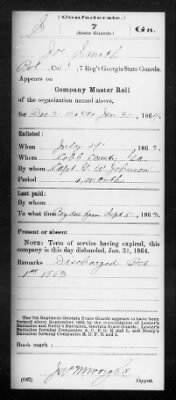 (Confederate.)
S 7 Ga.
(State Guards.)
Jno Smith
Pvt, Co. , 7 Reg't Georgia State Guards.
Appears on
Company Muster Roll
of the organization named above,
for Dec 31, 1863 to Jan 31, 1864.
Enlisted:
When July 4, 1863.
Where Cobb County Ga
By whom Capt G. W. Johnson
Period 6 months
Last paid:
By whom
To what time Pay due from Sept 5, 1863.
Present or absent
NOTE: Term of service having expired, this
company is this day disbanded, Jan. 31, 1864.
Remarks: Discharged
1st 1863
The 7th Regiment Georgia State Guards appears to have been
formed about September 1863, by the consolidation of Lester's
Battalion and Neely's Battalion, Georgia State Guards. Lester's
Battalion forming Companies
Battalion forming Companies
Book mark:
(642) Copyist.